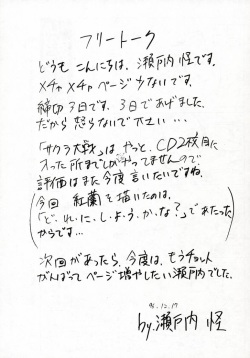 フリートーク
どうも こんにちは、瀬戸内 怪です。
メチャメチャ ページ 少ないです。
締切 3日です。3日であげました。
だから 怒らないで下さい…
「サクラ大戦」は やっと、CD2枚目に
入った所までしかやってませんので
評価はまた今度 言いたいですね。
今回 紅蘭を描いたのは、
「ど.れ.に.し.よ.う.か.な.?」であたった
からです…
次回があったら、今度は、もうチョット
がんばって ページ増やしたい瀬戸内でした。
96.12.17
by.瀬戸内 怪